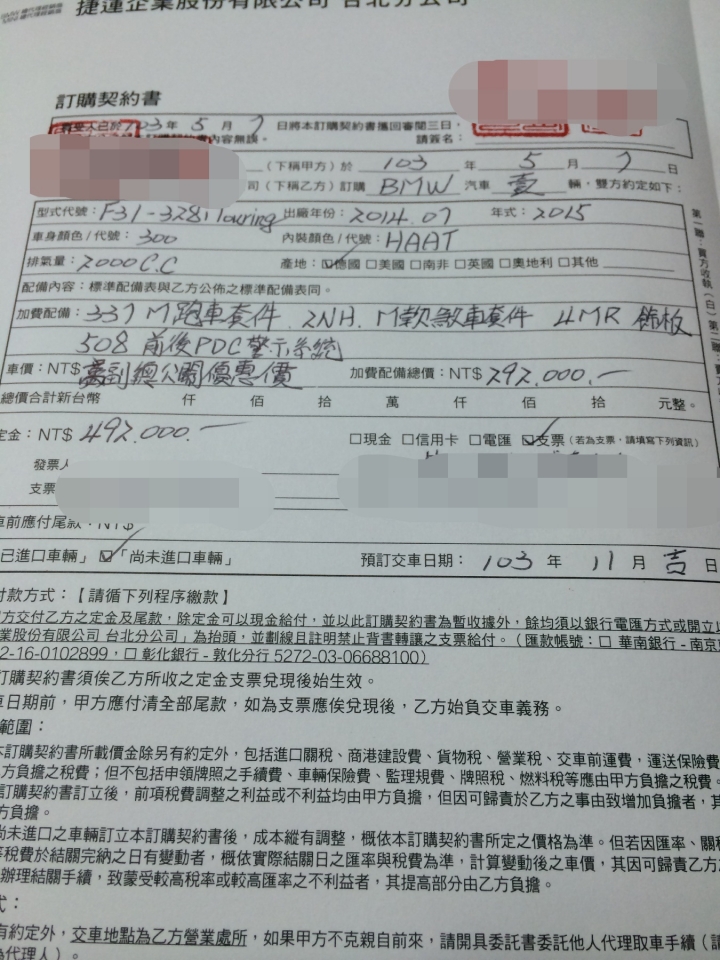 捷運企業股份有限公司 台北分公司
訂購契約書
103年 5 月 7 日將本訂購契約書攜回審閱三日，
內容無誤。 請簽名：
（下稱甲方）於 103 年 5 月 7 日
司（下稱乙方）訂購 BMW 汽車 壹 輛，雙方約定如下：
型式代號：F31-328i Touring 出廠年份：2014.07 年式：2015
車身顏色/代號：300 內裝顏色/代號：HAAT
排氣量：2000 C.C 產地：☑德國 □美國 □南非 □英國 □奧地利 □其他
配備內容：標準配備表與乙方公佈之標準配備表同。
加費配備：337 M跑車套件．2NH．M款煞車套件 4MR 飾板
508 前後PDC警示系統
車價：NT$ 萬副總公關優惠價 加費配備總價：NT$ 292,000.－
總價合計新台幣 仟 佰 拾 萬 仟 佰 拾 元整。
定金：NT$ 492,000.－ □現金 □信用卡 □電匯 ☑支票（若為支票，請填寫下列資訊）
發票人
支票
車前應付尾款：NT$
已進口車輛」☑「尚未進口車輛」 預訂交車日期： 103 年 11 月 吉 日
付款方式：【請循下列程序繳款】
方交付乙方之定金及尾款，除定金可以現金給付，並以此訂購契約書為暫收據外，餘均須以銀行電匯方式或開立以
業股份有限公司 台北分公司」為抬頭，並劃線且註明禁止背書轉讓之支票給付。（匯款帳號：□ 華南銀行 - 南京
2-16-0102899，□ 彰化銀行 - 敦化分行 5272-03-06688100）
訂購契約書須俟乙方所收之定金支票兌現後始生效。
車日期前，甲方應付清全部尾款，如為支票應俟兌現後，乙方始負交車義務。
範圍：
本訂購契約書所載價金除另有約定外，包括進口關稅、商港建設費、貨物稅、營業稅、交車前運費，運送保險費
方負擔之稅費；但不包括申領牌照之手續費、車輛保險費、監理規費、牌照稅、燃料稅等應由甲方負擔之稅費。
訂購契約書訂立後，前項稅費調整之利益或不利益均由甲方負擔，但因可歸責於乙方之事由致增加負擔者，其
方負擔。
尚未進口之車輛訂立本訂購契約書後，成本縱有調整，概依本訂購契約書所定之價格為準。但若因匯率、關稅
等稅費於結關完納之日有變動者，概依實際結關日之匯率與稅費為準，計算變動後之車價，其因可歸責乙方之
辦理結關手續，致蒙受較高稅率或較高匯率之不利益者，其提高部分由乙方負擔。
式：
有約定外，交車地點為乙方營業處所，如果甲方不克親自前來，請開具委託書委託他人代理取車手續（請
為代理人）。
第一聯：賣方收執（白）第二聯：買